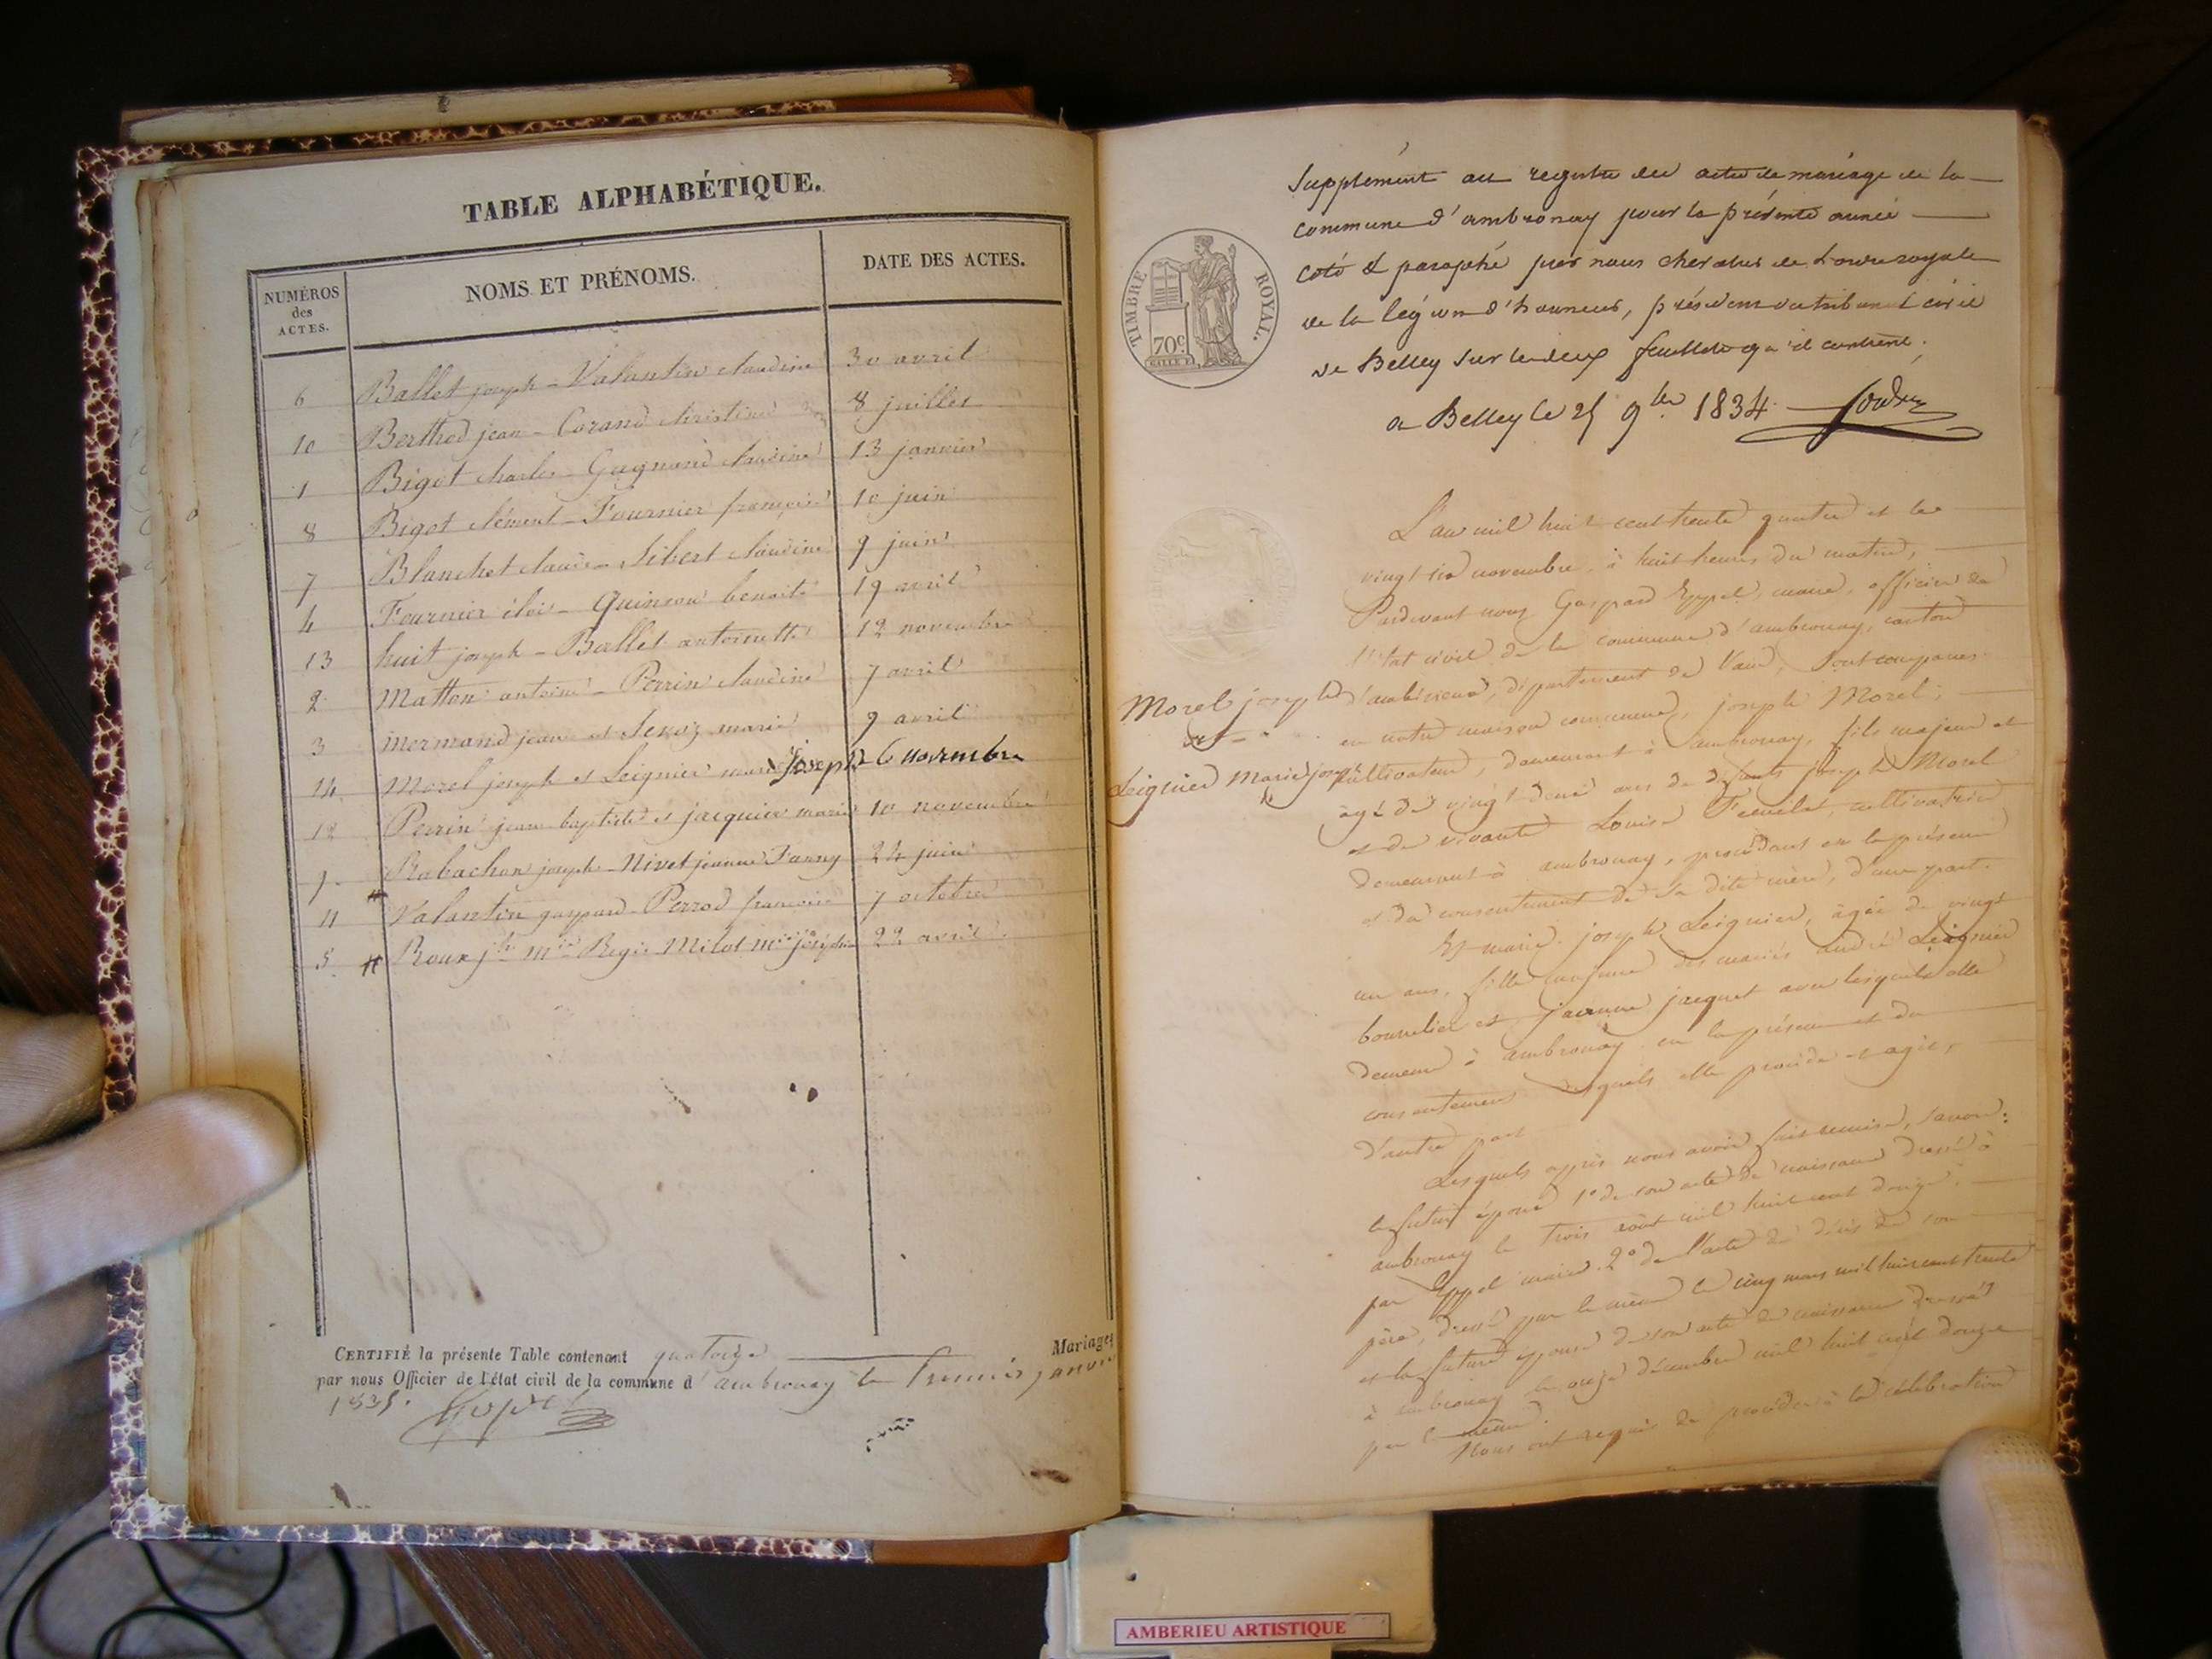 TABLE ALPHABÉTIQUE.
NUMÉROS des ACTES.
NOMS ET PRÉNOMS.
DATE DES ACTES.
6 Ballet joseph - Valantin claudine 30 avril
10 Berthod jean - Corand christine 8 juillet
1 Bigot charles - Gagnand claudine 13 janvier
8 Bigot clément - Fournier françoise 10 juin
7 Blanchet claude - Sibert claudine 9 juin
4 Fournier éloi - Quinson benoite 19 avril
13 huit joseph - Ballet antoinette 12 novembre
2 Matton antoine - Perrin claudine 7 avril
3 Mermand jean et marie 9 avril
14 Morel joseph et Leignier marie joseph novembre
12 Perrin jean baptiste et jacquier marie 10 novembre
Rabachon joseph - Nivet jeanne Fanny 24 juin
11 Valantin gaspard - Perrod françoise 7 octobre
5 Roux jh Regis Milot josephe 22 avril
CERTIFIÉ la présente Table contenant quatorze Mariages
par nous Officier de l'état civil de la commune d'ambronay le premier janvier
1835.
TIMBRE ROYAL
70c
Supplément au registre des actes de mariage de la
commune d'ambronay pour la présente année
coté & paraphé par nous chevalier de l'ordre royale
de la légion d'honneur, président du tribunal civil
de Belley sur les deux feuillets qu'il contient.
a Belley le 25 9bre 1834
L'an mil huit cent trente quatre et le
vingt six novembre, à huit heures du matin,
Pardevant nous Gaspard Eppel, maire, officier de
l'état civil de la commune d'ambronay, canton
d'ambérieux, département de l'ain, sont comparus
en notre maison commune, joseph Morel,
Morel joseph
et
Leignier Marie joseph
cultivateur, demeurant à ambronay, fils majeur et
âgé de vingt deux ans de défunt joseph Morel
et de vivante Louise cultivatrice
demeurant à ambronay, procédant en la présence
et du consentement de sa dite mère, d'une part.
Et marie joseph Leignier, âgée de vingt
un ans, fille majeure des mariés andré Leignier
bourrelier et jeanne jacquet avec lesquels elle
demeure à ambronay en la présence et du
consentement desquels elle procède et agit,
d'autre part
Lesquels après nous avoir fait remise, savoir:
le futur époux 1° de son acte de naissance dressé à
ambronay le trois août mil huit cent douze,
par Eppel maire. 2° de l'acte de décès de son
père, dressé par le même le cinq mars mil huit cent trente
et la future épouse de son acte de naissance dressé
à ambronay le onze décembre mil huit cent douze
par le même.
Nous ont requis de procéder à la célébration
AMBERIEU ARTISTIQUE